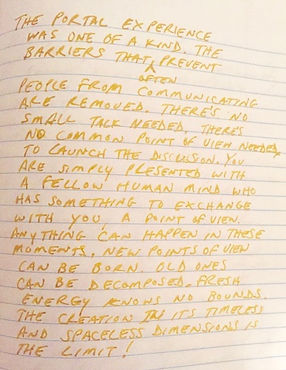 THE PORTAL EXPERIENCE
WAS ONE OF A KIND. THE
BARRIERS THAT OFTEN PREVENT
PEOPLE FROM COMMUNICATING
ARE REMOVED. THERE'S NO
SMALL TALK NEEDED, THERE'S
NO COMMON POINT OF VIEW NEEDED
TO LAUNCH THE DISCUSSION. YOU
ARE SIMPLY PRESENTED WITH
A FELLOW HUMAN MIND WHO
HAS SOMETHING TO EXCHANGE
WITH YOU, A POINT OF VIEW.
ANYTHING CAN HAPPEN IN THESE
MOMENTS, NEW POINTS OF VIEW
CAN BE BORN. OLD ONES
CAN BE DECOMPOSED, FRESH
ENERGY KNOWS NO BOUNDS.
THE CREATION IN ITS TIMELESS
AND SPACELESS DIMENSIONS IS
THE LIMIT!